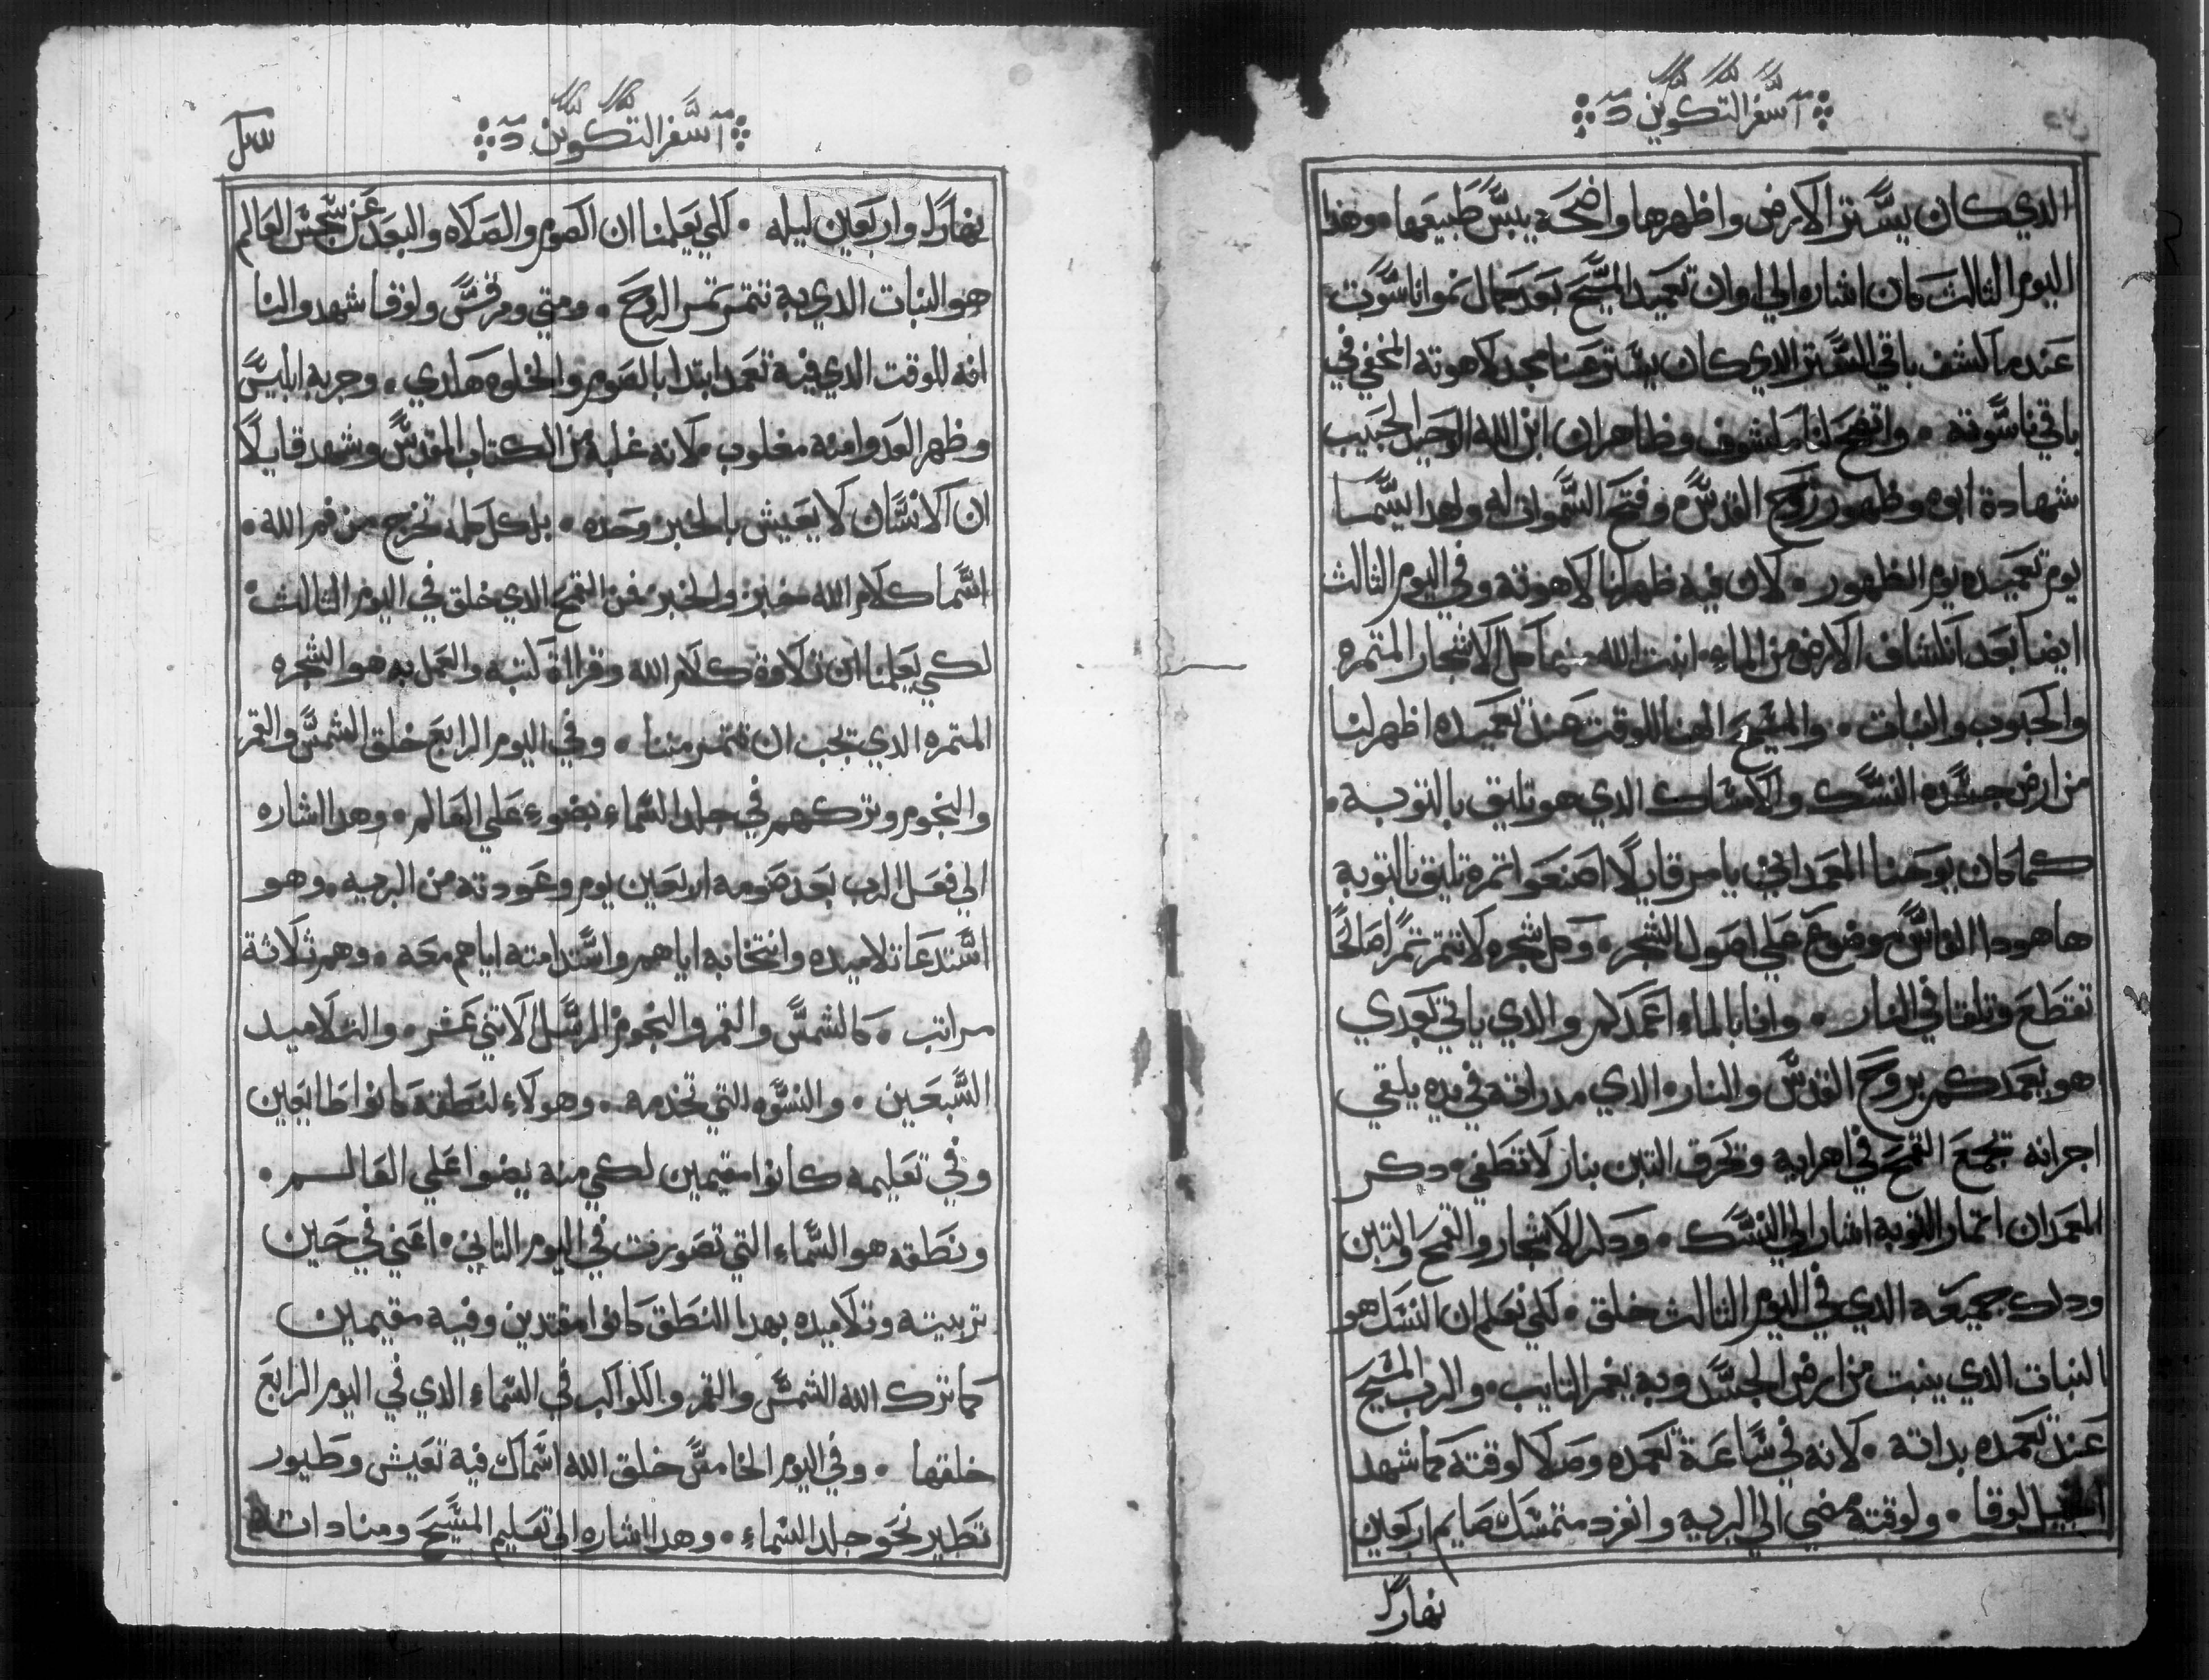 سفر التكوين
الدي كان يستر الارض واظهرها واضحه يبس طبيعها وهدا
اليوم التالت كان اشاره الي اوان تعميد المسيح بعد كمال نمو ناسوته
عندما كشف باقي الستر الدي كان يستر عنا مجد لاهوته المخفي في
باقي ناسوته واتضح لنا مكشوف وظاهر ان ابن الله الوحيد الحبيب
شهادة ابوه وظهور روح القدس وفتح السموات له ولهدا يسما
يوم تعميده يوم الظهور لان فيه ظهر لنا لاهوته وفي اليوم التالت
ايضا بعد انكشاف الارض من الماء انبت الله منها كل الاشجار المتمره
والحبوب والنبات والمسيح الهنا للوقت عند تعميده اظهر لنا
من ارض جسده النسك والامساك الدي هو تليق بالتوبه
كما كان يوحنا المعمداني يامر قايلًا اصنعوا تمرة تليق بالتوبه
هاهودا الفاس موضوع علي اصول الشجر وكل شجره لا تتمر تمرًا صالحًا
تقطع وتلقا في النار وانا بالماء اعمدكم والدي ياتي بعدي
هو يعمدكم بروح القدس والنار الدي مدراته في يده يلقي
اجرانه تجمع القمح في اهرايه وتحرق التبن بنار لا تطفي دكر
المعمدان اتمار التوبه اشار الي النسك ودكر الاشجار والقمح والتبن
ودلك جميعه الدي في اليوم التالت خلق لكي نعلم ان النسك هو
النبات الدي ينبت من ارض الجسد وبه يغفر التايب والرب المسيح
عند تعمده بداته لانه في ساعة تعمده وصلا لوقته كما شهد
لوقا ولوقته مضي الي البريه وانفرد متمسك صايم اربعين
نهارًا
سفر التكوين
نهارًا واربعين ليله لكي يعلمنا ان الصوم والصلاه والبعد عن سجس العالم
هو النبات الدي به تتمر تمر الروح ومتي ومرقس ولوقا شهدوا لنا
انه للوقت الدي فيه تعمد ابتدا بالصوم والخلوه هادي وجربه ابليس
وظهر العدوا منه مغلوب لانه غلبه من الكتاب المقدس وشهد قايلًا
ان الانسان لا يعيش بالخبز وحده بل كل كلمه تخرج من فم الله
اسما كلام الله خبز والخبز من القمح الدي خلق في اليوم التالت
لكي يعلمنا ان تلاوة كلام الله وقراة كتبه والعمل به هو الشجره
المتمره الدي تجب ان تتمر مننا وفي اليوم الرابع خلق الشمس والقمر
والنجوم وتركهم في جلد السماء بضوء علي العالم وهدا اشاره
الي فعل الرب بعد صومه اربعين يوم وعودته من البريه وهو
استدعا تلاميده وانتخابه اياهم واستدامته اياهم معه وهم ثلاثة
مراتب كالشمس والقمر والنجوم الرسل الاتني عشر والتلاميد
السبعين والنسوه التي تخدمه وهولاء لنطقه كانوا طايعين
وفي تعليمه كانوا مقيمين لكي منه يضوا علي العالم
ونطقه هو السماء التي تصورت في اليوم التاني اعني في حين
تربيته وتلاميده بهدا النطق كانوا مقتدين وفيه مقيمين
كما ترك الله الشمس والقمر والكواكب في السماء الدي في اليوم الرابع
خلقها وفي اليوم الخامس خلق الله اسماك فيه تعيش وطيور
تطير نحو جلد السماء وهدا اشاره الي تعليم المسيح ومناداته